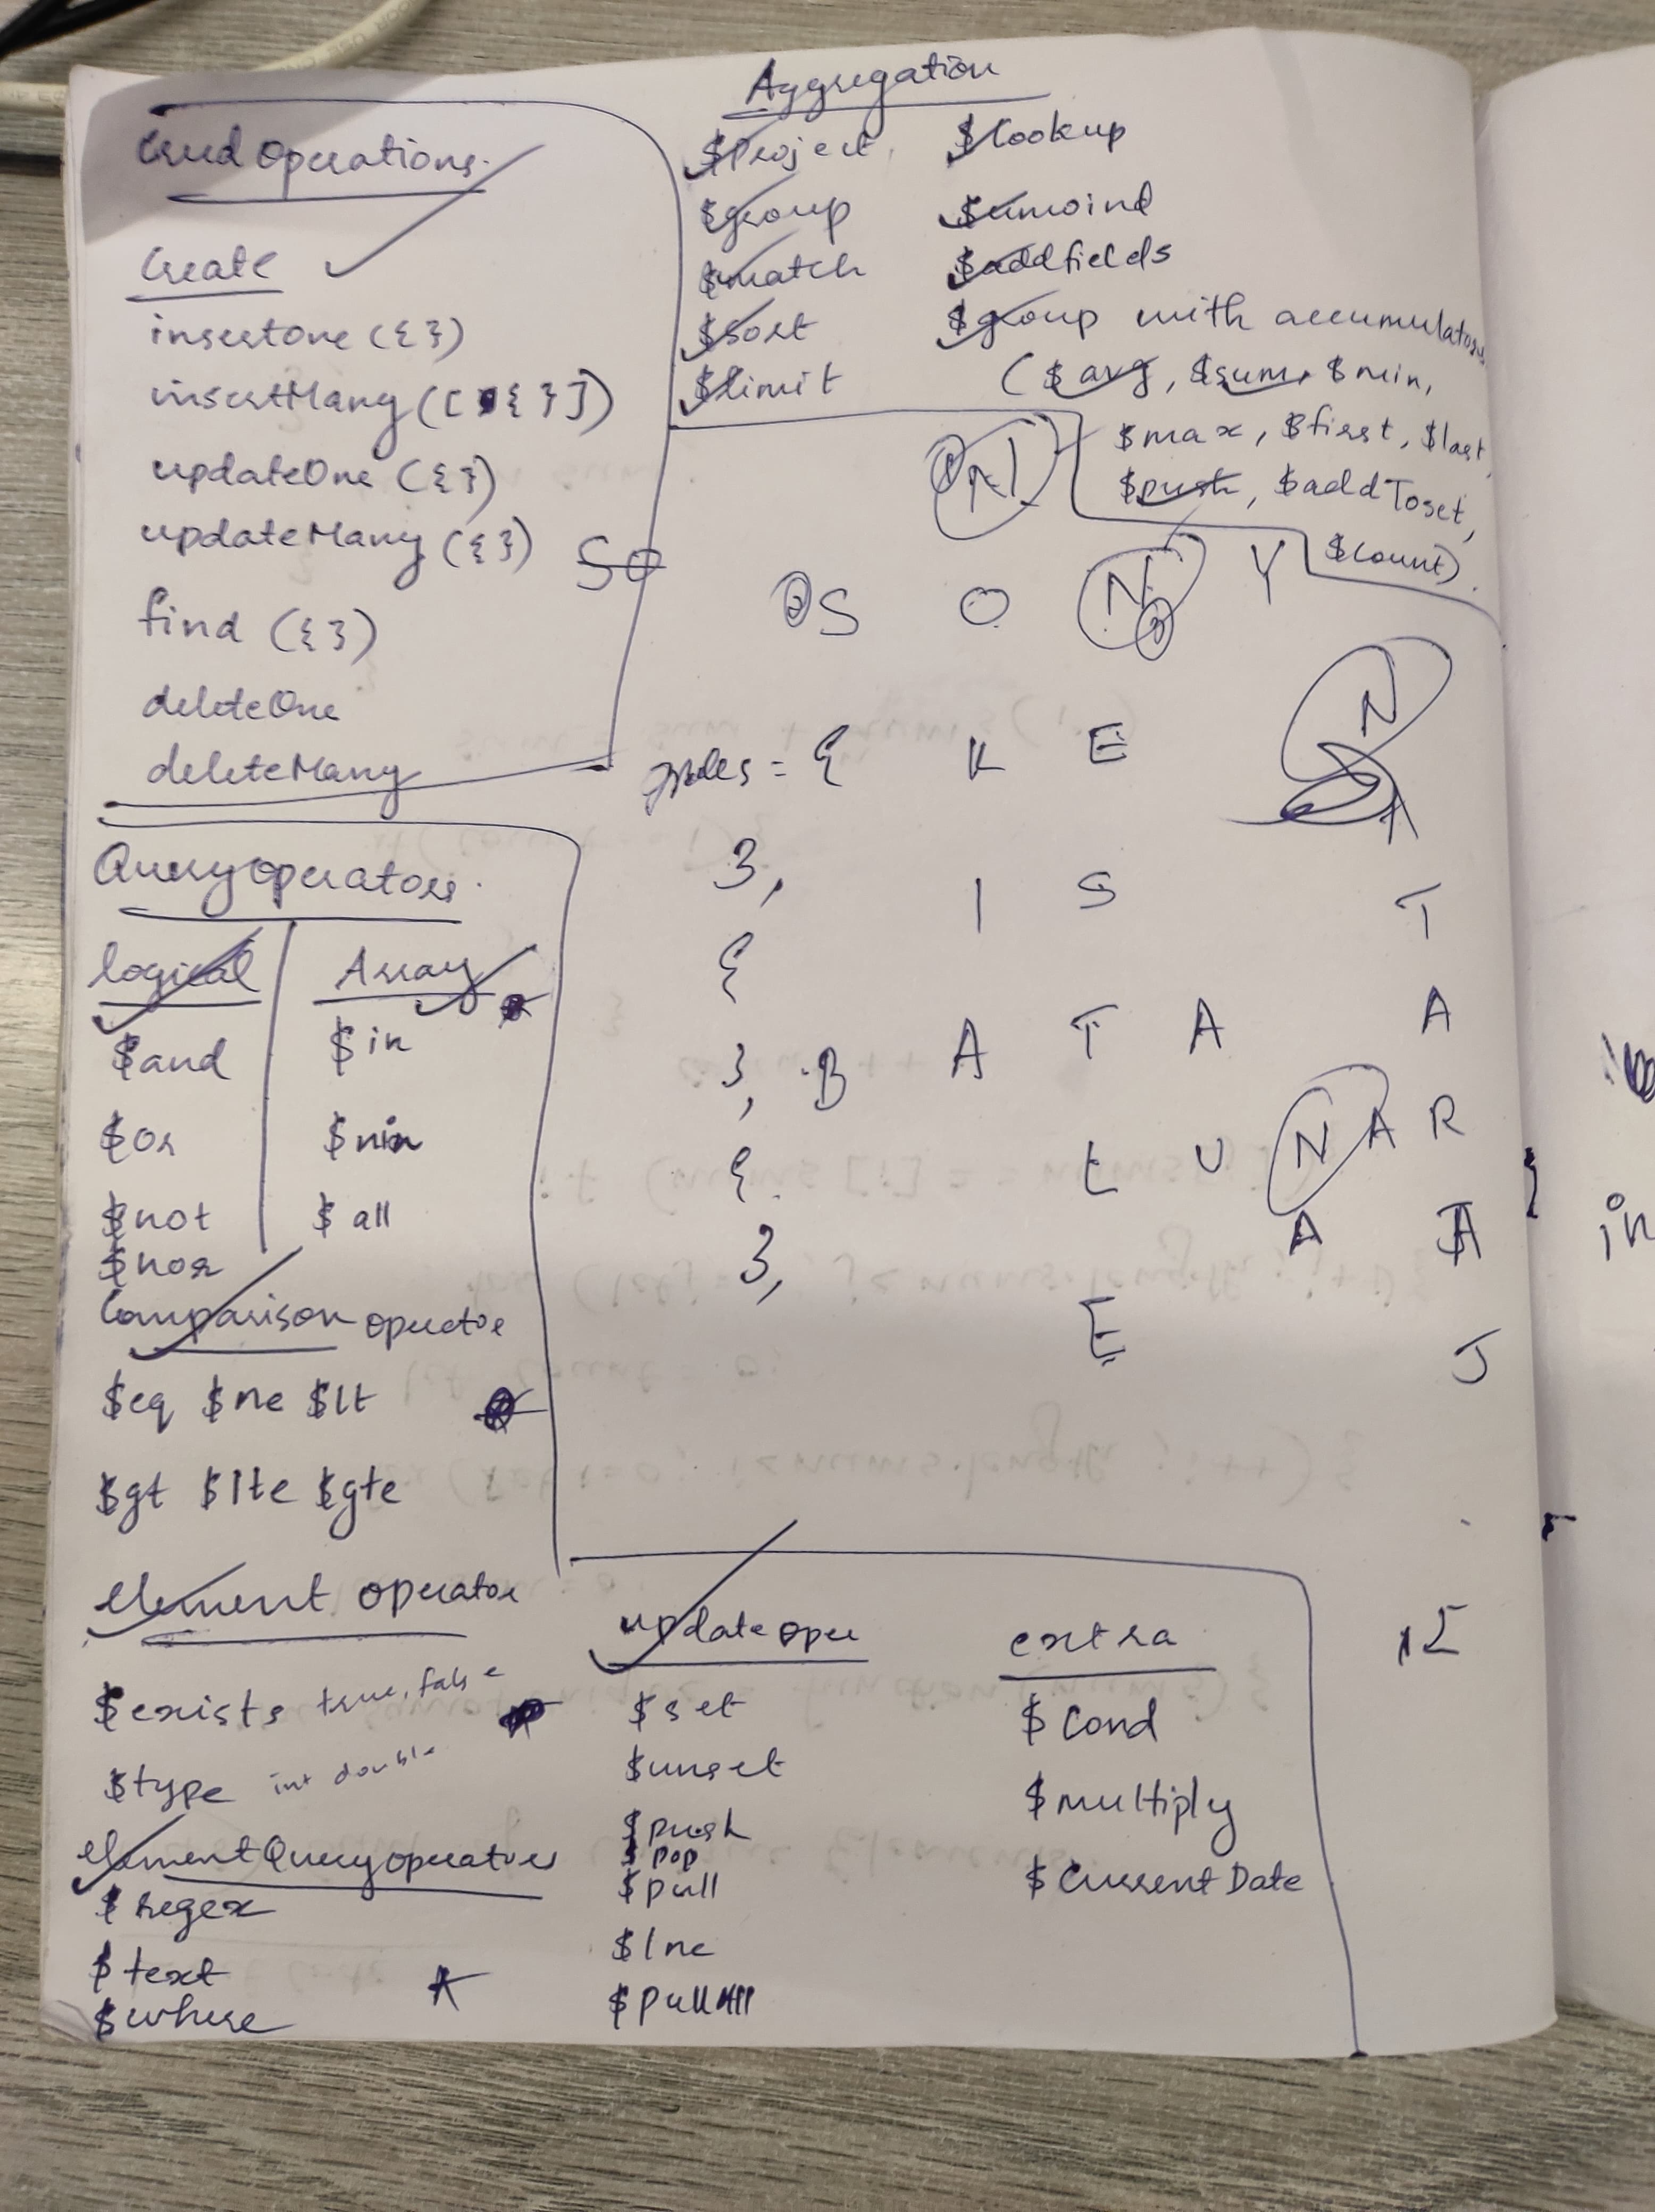 Crud Operations.
Create
insertOne ({ })
insertMany ([ { } ])
updateOne ({ })
updateMany ({ })
find ({ })
deleteOne
deleteMany
Aggregation
$project, $lookup
$group $unwind
$match $addfields
$sort $group with accumulators
$limit ($avg, $sum, $min,
$max, $first, $last,
$push, $addToset,
$count).
So
N
S O N Y
N
= { K E
A
}, I S T
{
A T A A
}, B
{ L U N A R
A A
},
E J
Query operators.
logical Array
$and $in
$or $nin
$not $all
$nor
Comparison operator
$eq $ne $lt
$gt $lte $gte
element operator
$exists true, false
$type int double
element Query operators
$regex
$text
$where
update oper
$set
$unset
$push
$pop
$pull
$Inc
$pullAll
extra
$Cond
$multiply
$CurrentDate
in